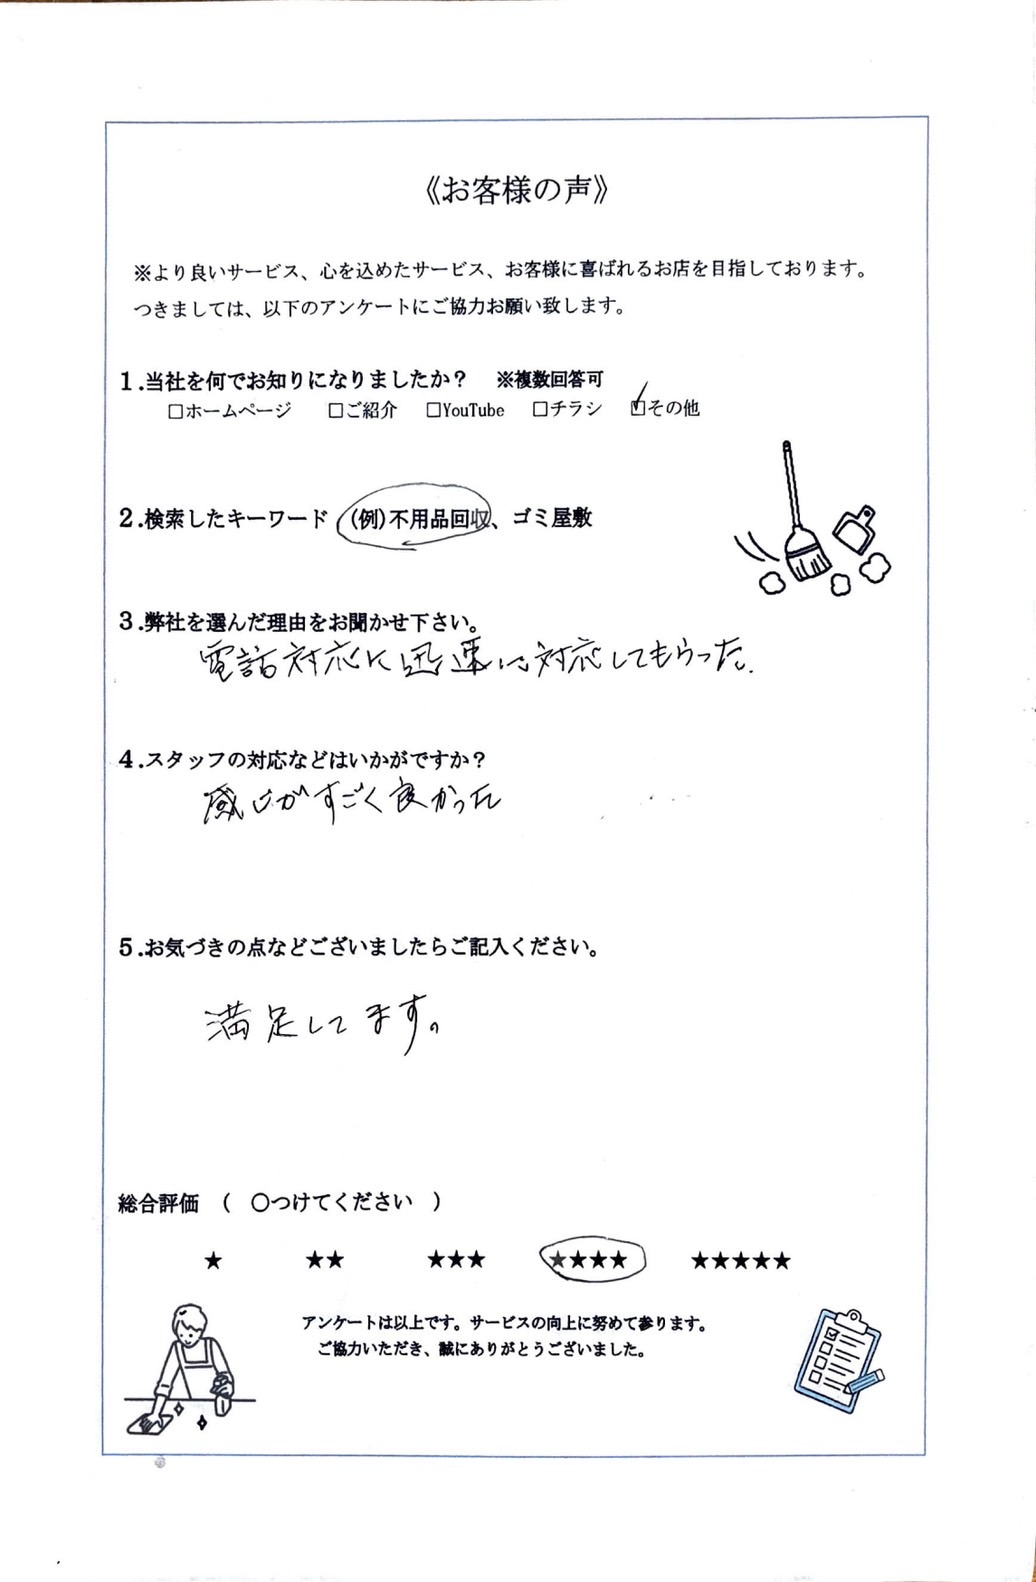 《お客様の声》
※より良いサービス、心を込めたサービス、お客様に喜ばれるお店を目指しております。
つきましては、以下のアンケートにご協力お願い致します。
1.当社を何でお知りになりましたか？　※複数回答可
□ホームページ　□ご紹介　□YouTube　□チラシ　☑その他
2.検索したキーワード　(例)不用品回収、ゴミ屋敷
3.弊社を選んだ理由をお聞かせ下さい。
電話対応に迅速に対応してもらった.
4.スタッフの対応などはいかがですか？
感じがすごく良かった
5.お気づきの点などございましたらご記入ください。
満足してます。
総合評価　（　〇つけてください　）
★　★★　★★★　★★★★　★★★★★
アンケートは以上です。サービスの向上に努めて参ります。
ご協力いただき、誠にありがとうございました。